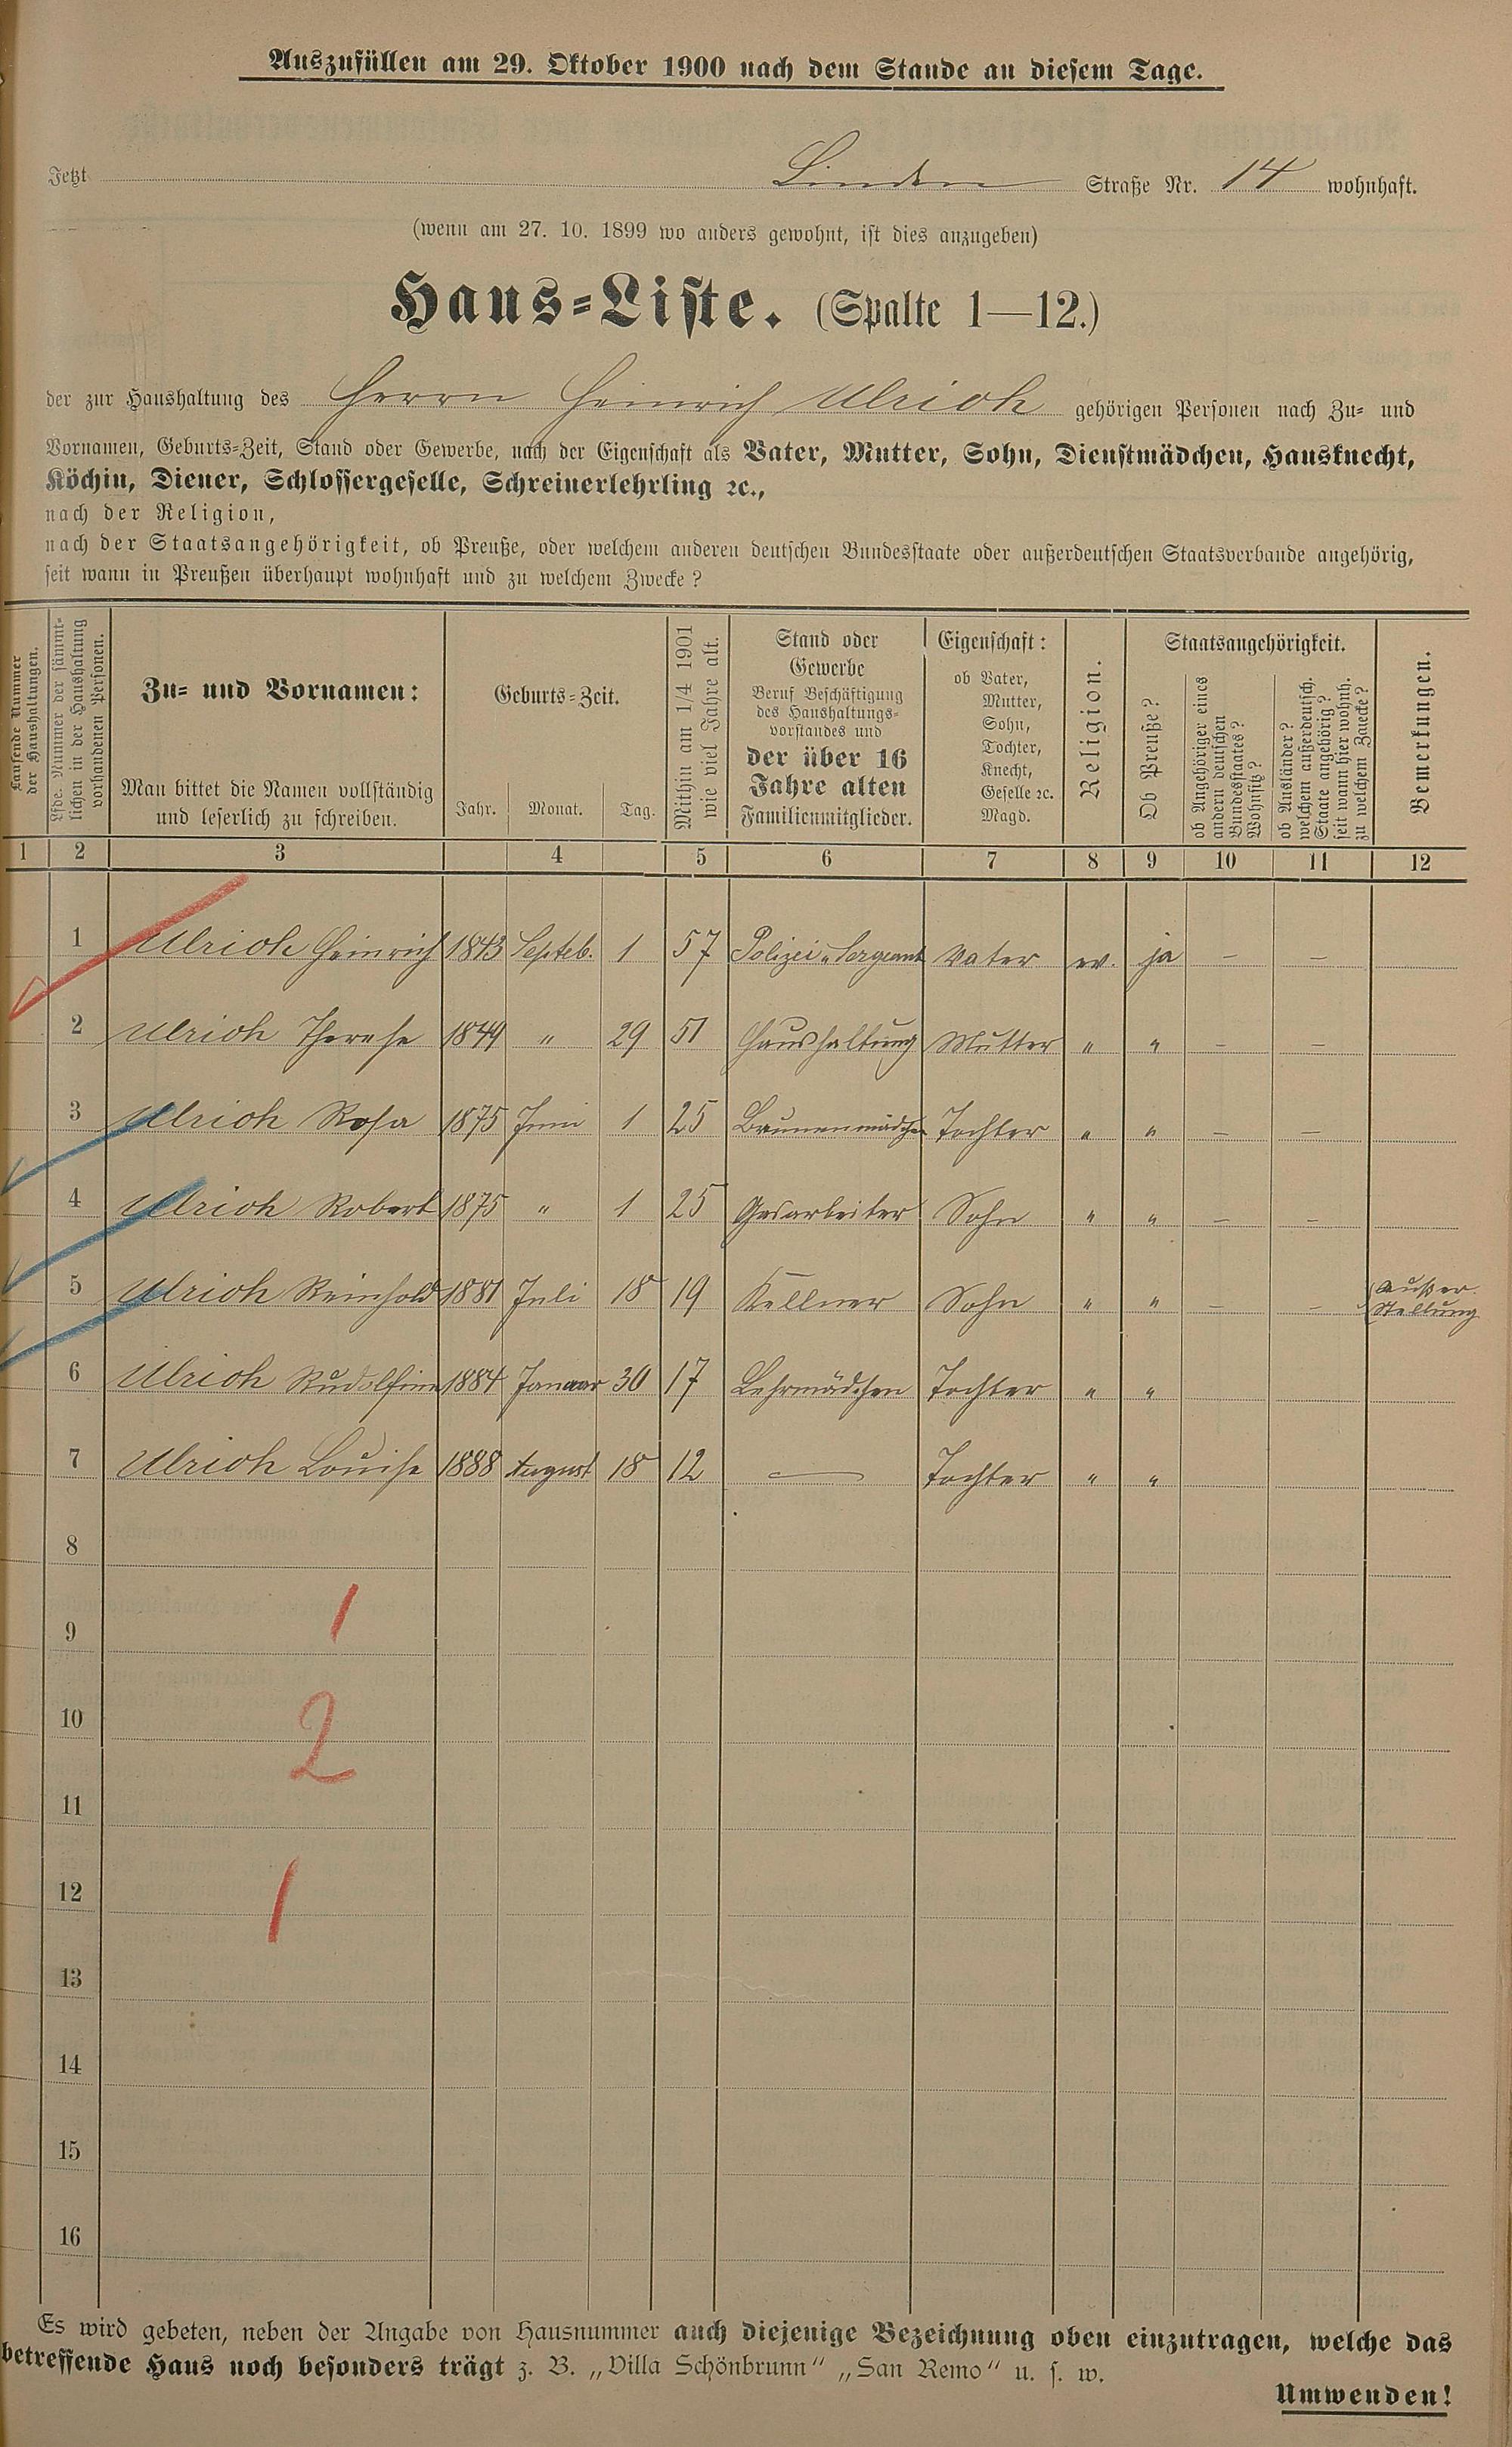 Auszufüllen am 29. Oktober 1900 nach dem Stande an diesem Tage.
Jetzt Linden Straße Nr. 14 wohnhaft.
(wenn am 27. 10. 1899 wo anders gewohnt, ist dies anzugeben)
Haus-Liste. (Spalte 1—12.)
der zur Haushaltung des Herrn Heinrich Ulrich gehörigen Personen nach Zu- und
Vornamen, Geburts-Zeit, Stand oder Gewerbe, nach der Eigenschaft als Vater, Mutter, Sohn, Dienstmädchen, Hausknecht,
Köchin, Diener, Schlossergeselle, Schreinerlehrling ꝛc.,
nach der Religion,
nach der Staatsangehörigkeit, ob Preuße, oder welchem anderen deutschen Bundesstaate oder außerdeutschen Staatsverbande angehörig,
seit wann in Preußen überhaupt wohnhaft und zu welchem Zwecke?
Laufende Nummer
der Haushaltungen.
Lfde. Nummer der sämmt-
lichen in der Haushaltung
vorhandenen Personen.
Zu- und Vornamen:
Man bittet die Namen vollständig
und leserlich zu schreiben.
Geburts-Zeit.
Jahr. Monat. Tag.
Mithin am 1/4 1901
wie viel Jahre alt.
Stand oder
Gewerbe
Beruf Beschäftigung
des Haushaltungs-
vorstandes und
der über 16
Jahre alten
Familienmitglieder.
Eigenschaft:
ob Vater,
Mutter,
Sohn,
Tochter,
Knecht,
Geselle ꝛc.
Magd.
Religion.
Staatsangehörigkeit.
Ob Preuße?
ob Angehöriger eines
andern deutschen
Bundesstaates?
Wohnsitz?
ob Ausländer?
welchem außerdeutsch.
Staate angehörig?
seit wann hier wohnh.
zu welchem Zwecke?
Bemerkungen.
1 2 3 4 5 6 7 8 9 10 11 12
1 Ulrich Heinrich 1843 Septeb. 1 57 Polizei-Sergeant Vater ev. ja — —
2 Ulrich Therese 1849 " 29 51 Haushaltung Mutter " " — —
3 Ulrich Rosa 1875 Juni 1 25 Brunnenmädchen Tochter " " — —
4 Ulrich Robert 1875 " 1 25 Gasarbeiter Sohn " " — —
5 Ulrich Reinhold 1881 Juli 18 19 Kellner Sohn " " — — außer
Stellung
6 Ulrich Rudolfine 1884 Januar 30 17 Lehrmädchen Tochter " "
7 Ulrich Louise 1888 August 18 12 — Tochter " "
8
1
9
10
2
11
12
1
13
14
15
16
Es wird gebeten, neben der Angabe von Hausnummer auch diejenige Bezeichnung oben einzutragen, welche das
betreffende Haus noch besonders trägt z. B. „Villa Schönbrunn“ „San Remo“ u. s. w.
Umwenden!